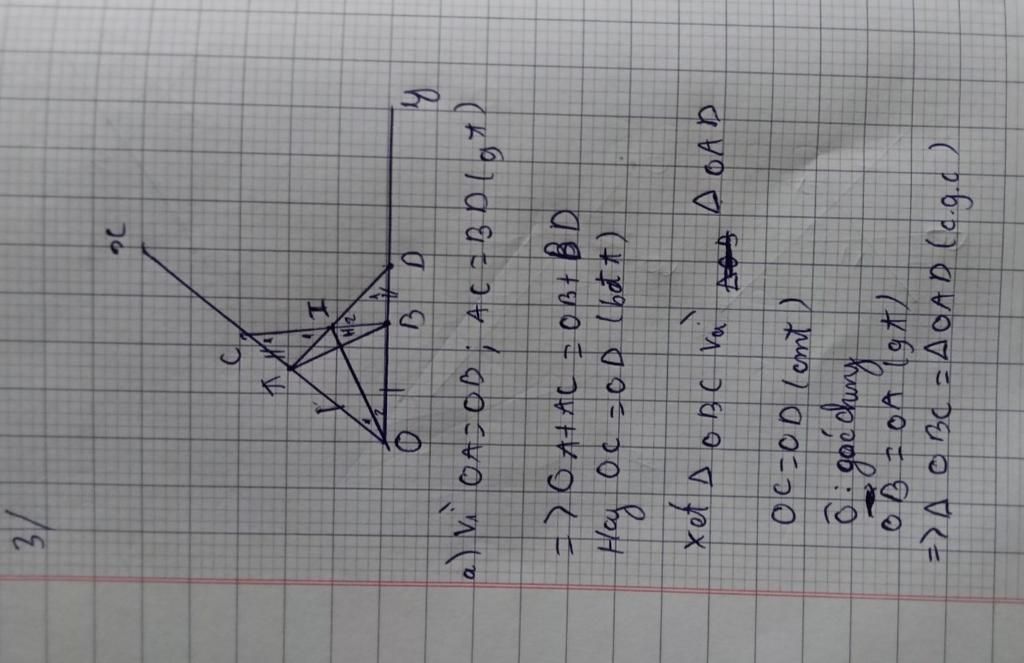 3/
x
C
A
I
O
B
D
y
a) Vì OA = OB ; AC = BD (gt)
=> OA + AC = OB + BD
Hay OC = OD (bđt)
Xét Δ OBC Và Δ OAD
OC = OD (cmt)
Ô: góc chung
OB = OA (gt)
=> Δ OBC = Δ OAD (c.g.c)